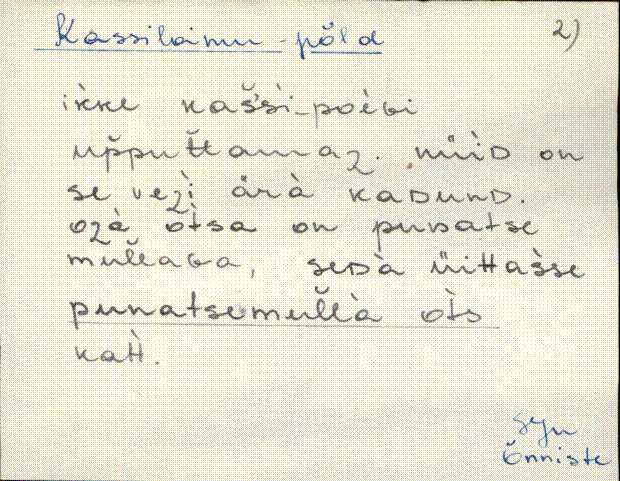 Kassiloimu-põld 2)
ikke kašši-poėGi
uppuťťamaz. nüiD on
se vezì ärà kaDunD.
ozà òtsa on punatse
mullaGa, seDà üittàsse
punatsemullà òts
kaH.
Syn
Õnniste